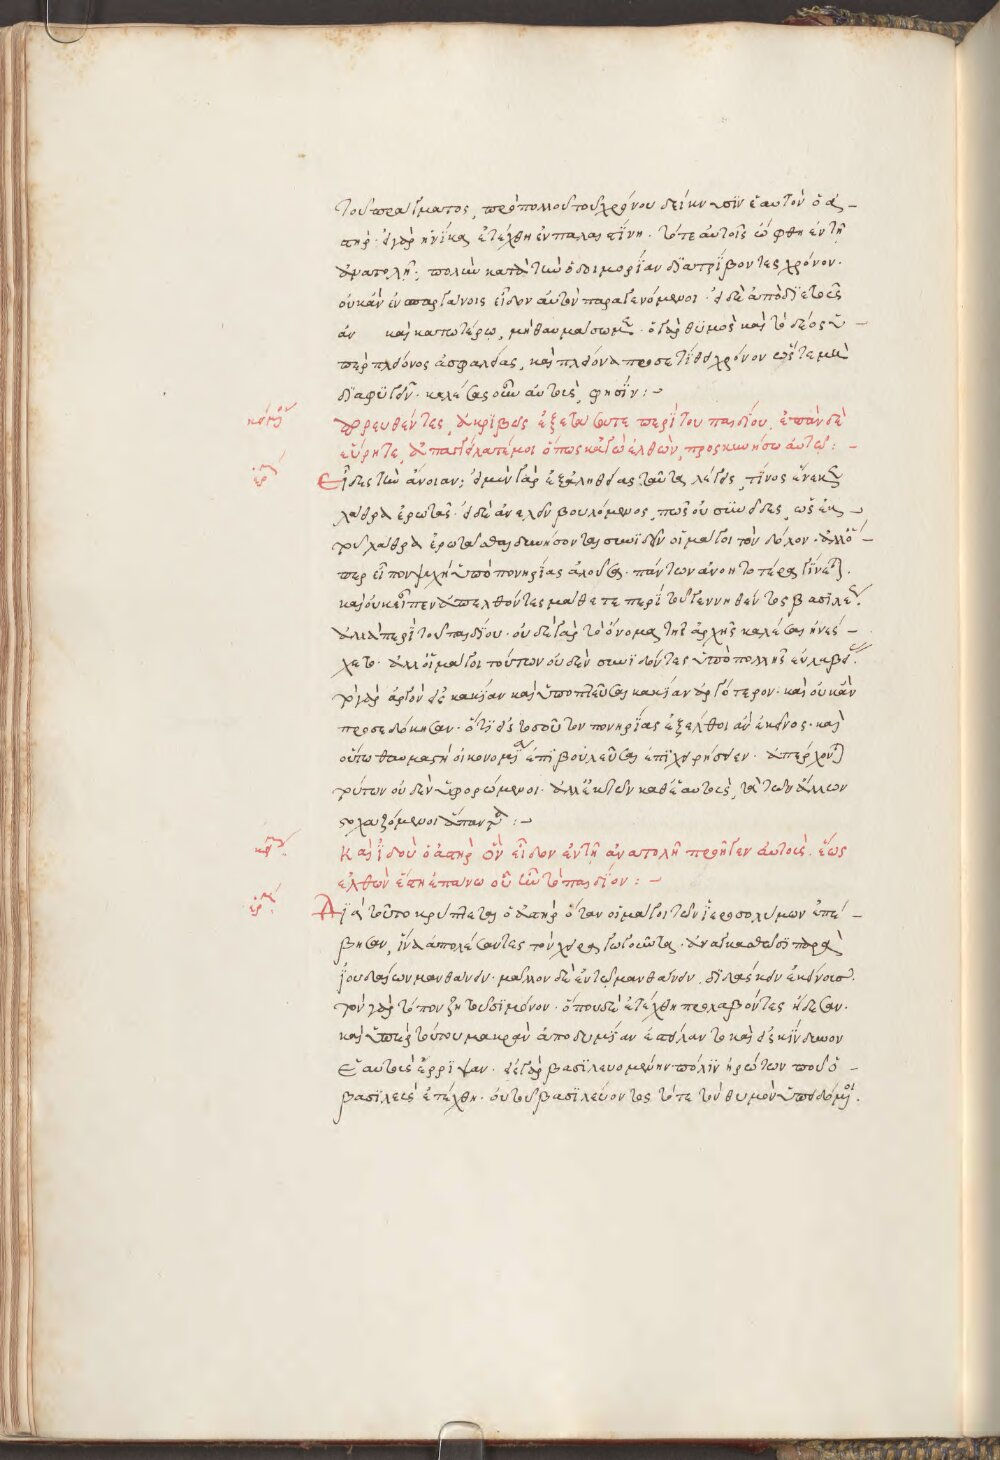 τοῦ πράγματος, πρὸ πολλοῦ τοῦ χρόνου δείκνυσϊν ἑαυτὸν ὁ ἀ –
στήρ· εἰ γὰρ ἡνίκα ἐτέχθη ἐν παλαιστίνη· τότε αὐτοῖς ὤφθη ἐν τῆ
ἀνατολῆ; πολὺν κατὰ τὴν ὁδοιπορίαν δϊατρίβοντες χρόνον·
οὐκ ἂν ἐν σπαργάνοις εἶδον αὐτὸν παραγενόμενοι· εἰ δὲ ἀπὸ διετοῦς
ἀν καὶ κατωτέρω, μὴ θαυμάσωμεν· ὁ γὰρ θϋμὸς καὶ τὸ δέος ὑ –
πὲρ πλείονος ἀσφαλείας, καὶ πλείονα προσετίθει χρόνον ὥστε μὴ
δϊαφϋγεῖν· καλέσας οὖν αὐτοὺς, φησΐν : –
πορευθέντες, ἀκρϊβῶς ἐξετάσατε περὶ τοῦ παιδίου, ἐπὰν δὲ
εὕρητε, ἀπαγγείλατέ μοι ὅπως κἀγὼ ἐλθὼν, προσκυνήσω αὐτῶ : –
Εἶδες τὴν ἄνοιαν; εἰ μὲν γὰρ ἐξ ἀληθείας ταῦτα λέγεις, τίνος ἕνεκεν
λάθρα ἐρωτᾶς· εἰ δὲ ἀνελεῖν βουλόμενος, πῶς οὐ συνεῖδες, ὡς ἐκ
τοῦ λάθρα ἐρωτᾶσθαι δυνήσονται συνϊδεῖν οἱ μάγοι τὸν δόλον· ἀλλ' ὅ –
περ εἶπον ψυχὴ ὑπὸ πονηρίας ἁλοῦσα· πάντων ἀνοητοτέρα γίνεται.
καὶ οὐκ εἶπεν ἀπελθόντες μάθετε περὶ τοῦ γεννηθέντος βασϊλέως.
ἀλλὰ περὶ τοῦ παιδίου· οὐδὲ γὰρ τὸ ὄνομα τῆς ἀρχῆς καλέσαι ἠνέ –
χετο· ἀλλ' οἱ μάγοι τούτων οὐδὲν συνϊδόντες ὑπὸ πολλῆς εὐλαβείας.
προσεδόκησαν· ὅτϊ εἰς τοσοῦτον πονηρίας ἐξέλθοι ἂν ἐκεῖνος· καὶ
οὕτω θαυμαστῆ οἰκονομία ἐπϊβουλεῦσαι ἐπϊχειρήσειεν· ἀπέρχονται
τούτων οὐδὲν ὑφορώμενοι· ἀλλ' ἐκ τῶν καθ' ἑαυτοὺς, τὰ τῶν ἄλλων
στοχαζόμενοι ἅπαντα : –
Καὶ ἰδοὺ ὁ ἀστὴρ ὃν εἶδον ἐν τῆ ἀνατολῆ προῆγεν αὐτοὺς, ἕως
ἐλθὼν ἔστη ἐπάνω οὗ ἦν τὸ παιδίον : –
Διὰ τοῦτο κρύπτεται ὁ ἀστὴρ ὅταν οἱ μάγοι τῶν ἱεροσολύμων ἐπέ –
βησαν, ἵνα ἀπολέσαντες τὸν χειραγωγοῦντα· ἀναγκασθῶσϊ παρὰ
ἰουδαίων μανθάνειν· μᾶλλον δὲ ἐν τῶ μανθάνειν, δϊδάσκειν ἐκείνους.
καὶ ὑπὲρ τούτου μακρὰν ἀποδημίαν ἐστείλαντο καὶ εἰς κίνδυνον
ἑαυτοὺς ἔρρϊψαν· εἰς γὰρ βασϊλευομένην πόλϊν ἠρώτων ποῦ ὁ –
βασϊλεὺς ἐτέχθη· οὐ τοῦ βασϊλεύοντος τότε τὸν θυμὸν ὑποδειμαι.